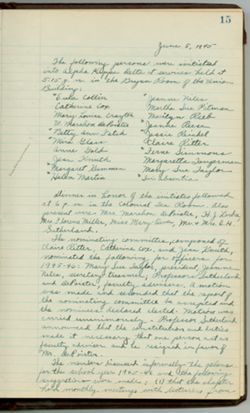 15
June 5, 1945
The following persons were initiated
into Alpha Kappa Delta at services held at
5:15 p.m. in the Bryan Room of the Union
Building:
Catherine Cox
Mary Louise
Betty Ann
Mary Glass
Anne Gold
Jean Knuth
Margaret
Helen Martin
Jeanne Heles
Martha Sue Pitman
Marilyn
Jessie
Claire Ritter
Irene Simmons
Margaretta
Mary Sue Taylor
Dinner in honor of the initiates followed
at 6 p.m. in the Colonial Tea Room. Also
present were Mrs. Marshon DePoister, H. J.
Mrs. Florence Miller, Miss Mary Mr. + Mrs. E. H.
Sutherland.
The nominating committee, composed of
Claire Ritter, Catherine Cox and Jean Knuth,
nominated the following for officers for
1945-46: Mary Sue Taylor, president, Jeanne
Heles, secretary-treasurer, Professors Sutherland
and DePoister, faculty advisers. A motion
was made and seconded that the report of
the nominating committee be accepted and
the nominees declared elected. Motion was
carried unanimously. Professor Sutherland
announced that the constitution and bylaws
made it necessary that one person act as
faculty adviser and he resigned in favor of
Mr. DePoister.
The members discussed informally the plans
for the school year 1945-46 and the following
suggestions were made: (1) that the chapter
hold monthly meetings with lectures from